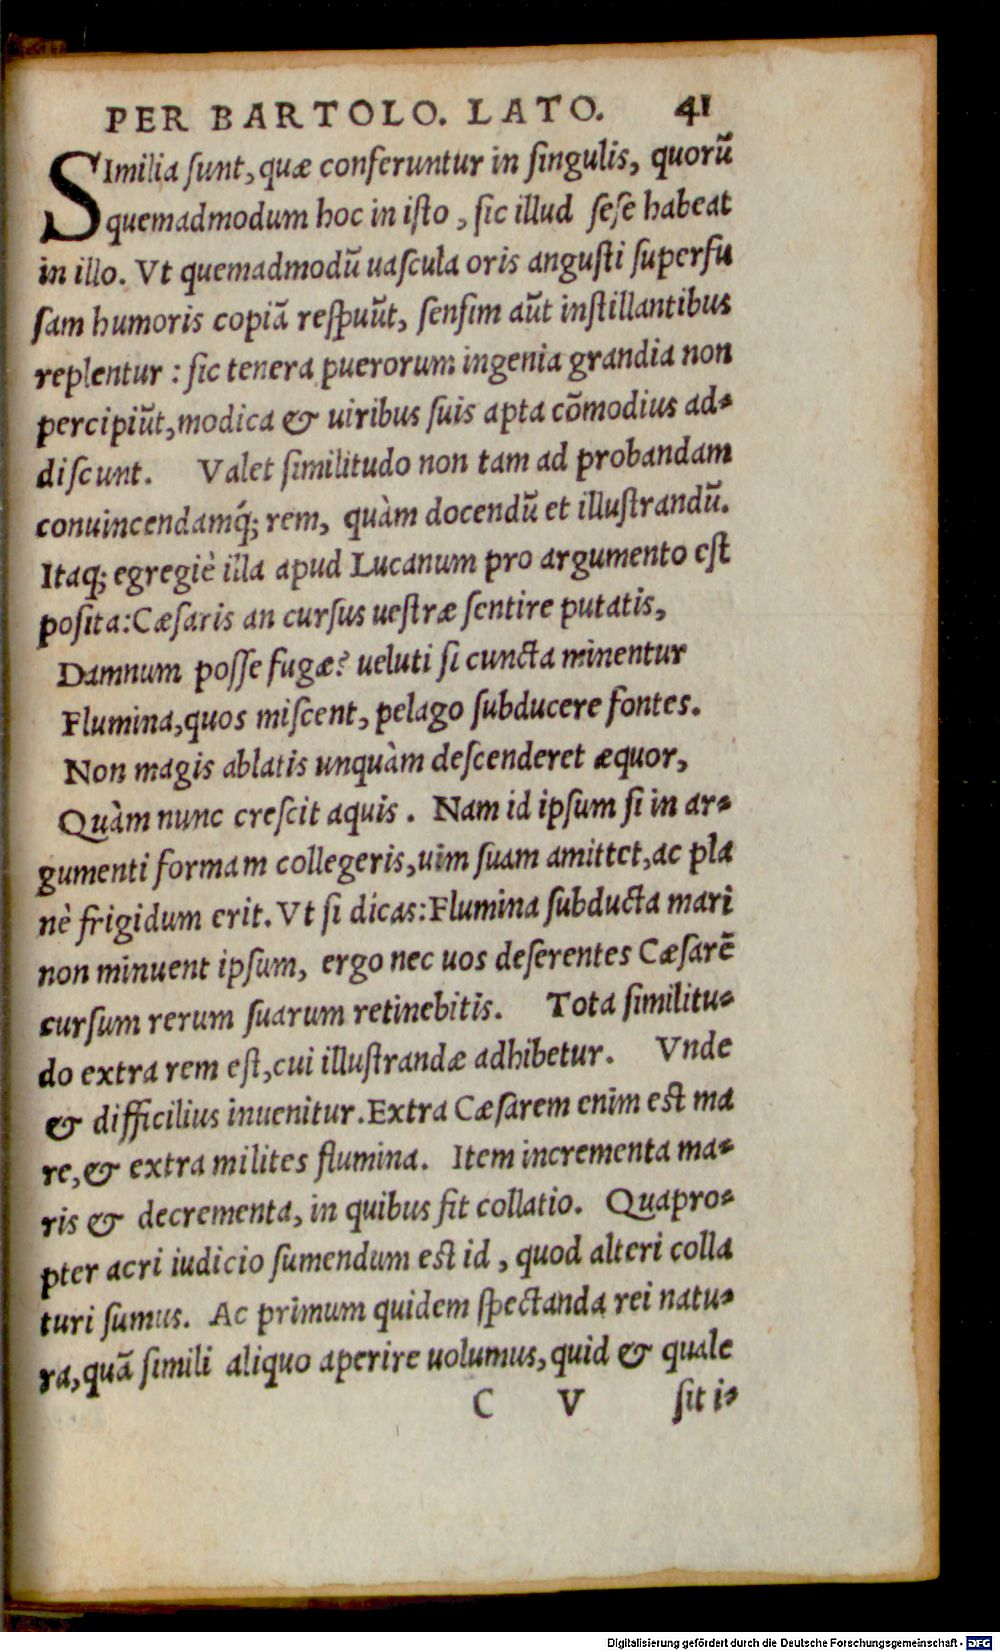 PER BARTOLO. LATO. 41
SImilia ſunt, quæ conferuntur in ſingulis, quorũ
quemadmodum hoc in iſto, ſic illud ſeſe habeat
in illo. Vt quemadmodũ uaſcula oris anguſti ſuperfu
ſam humoris copiã reſpuũt, ſenſim aũt inſtillantibus
replentur: ſic tenera puerorum ingenia grandia non
percipiũt, modica & uiribus ſuis apta cõmodius ad-
diſcunt. Valet ſimilitudo non tam ad probandam
conuincendamq́; rem, quàm docendũ et illuſtrandũ.
Itaq; egregiè illa apud Lucanum pro argumento eſt
poſita: Cæſaris an curſus ueſtræ ſentire putatis,
Damnum poſſe fugæ? ueluti ſi cuncta minentur
Flumina, quos miſcent, pelago ſubducere fontes.
Non magis ablatis unquàm deſcenderet æquor,
Quàm nunc creſcit aquis. Nam id ipſum ſi in ar-
gumenti formam collegeris, uim ſuam amittet, ac pla
nè frigidum erit. Vt ſi dicas: Flumina ſubducta mari
non minuent ipſum, ergo nec uos deſerentes Cæſarẽ
curſum rerum ſuarum retinebitis. Tota ſimilitu-
do extra rem eſt, cui illuſtrandæ adhibetur. Vnde
& difficilius inuenitur. Extra Cæſarem enim eſt ma
re, & extra milites flumina. Item incrementa ma-
ris & decrementa, in quibus fit collatio. Quapro-
pter acri iudicio ſumendum eſt id, quod alteri colla
turi ſumus. Ac primum quidem ſpectanda rei natu-
ra, quã ſimili aliquo aperire uolumus, quid & quale
C V ſit i-
Digitalisierung gefördert durch die Deutsche Forschungsgemeinschaft - DFG